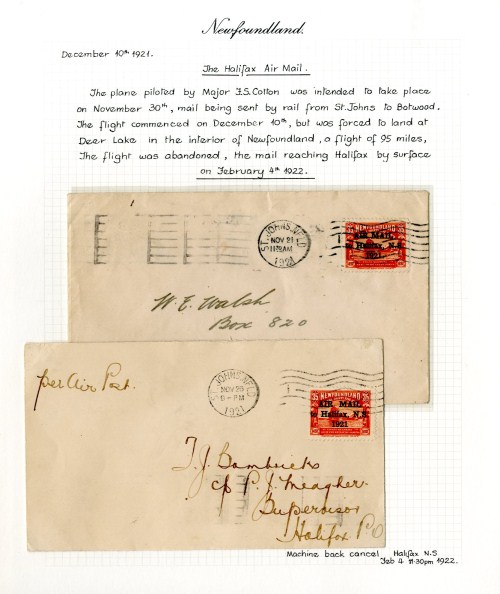 Newfoundland.
December 10th 1921.
The Halifax Air Mail.
The plane piloted by Major F.S. Cotton was intended to take place
on November 30th, mail being sent by rail from St. Johns to Botwood.
The flight commenced on December 10th, but was forced to land at
Deer Lake in the interior of Newfoundland, a flight of 95 miles,
The flight was abandoned, the mail reaching Halifax by surface
on February 4th 1922.
ST. JOHN'S, NFLD
NOV 21
1921
NEWFOUNDLAND
AIR MAIL
to Halifax, N.S.
1921
W. E. Walsh
Box 820
per Air Post.
ST. JOHN'S, NFLD
NOV 26
5-PM
1921
35 NEWFOUNDLAND 35
AIR MAIL
to Halifax, N.S.
1921
T. J. Bambricks
c/o P. J. Meagher
Supervisor
Halifax P.O
Machine back cancel Halifax N.S
Feb 4 11.30pm 1922.